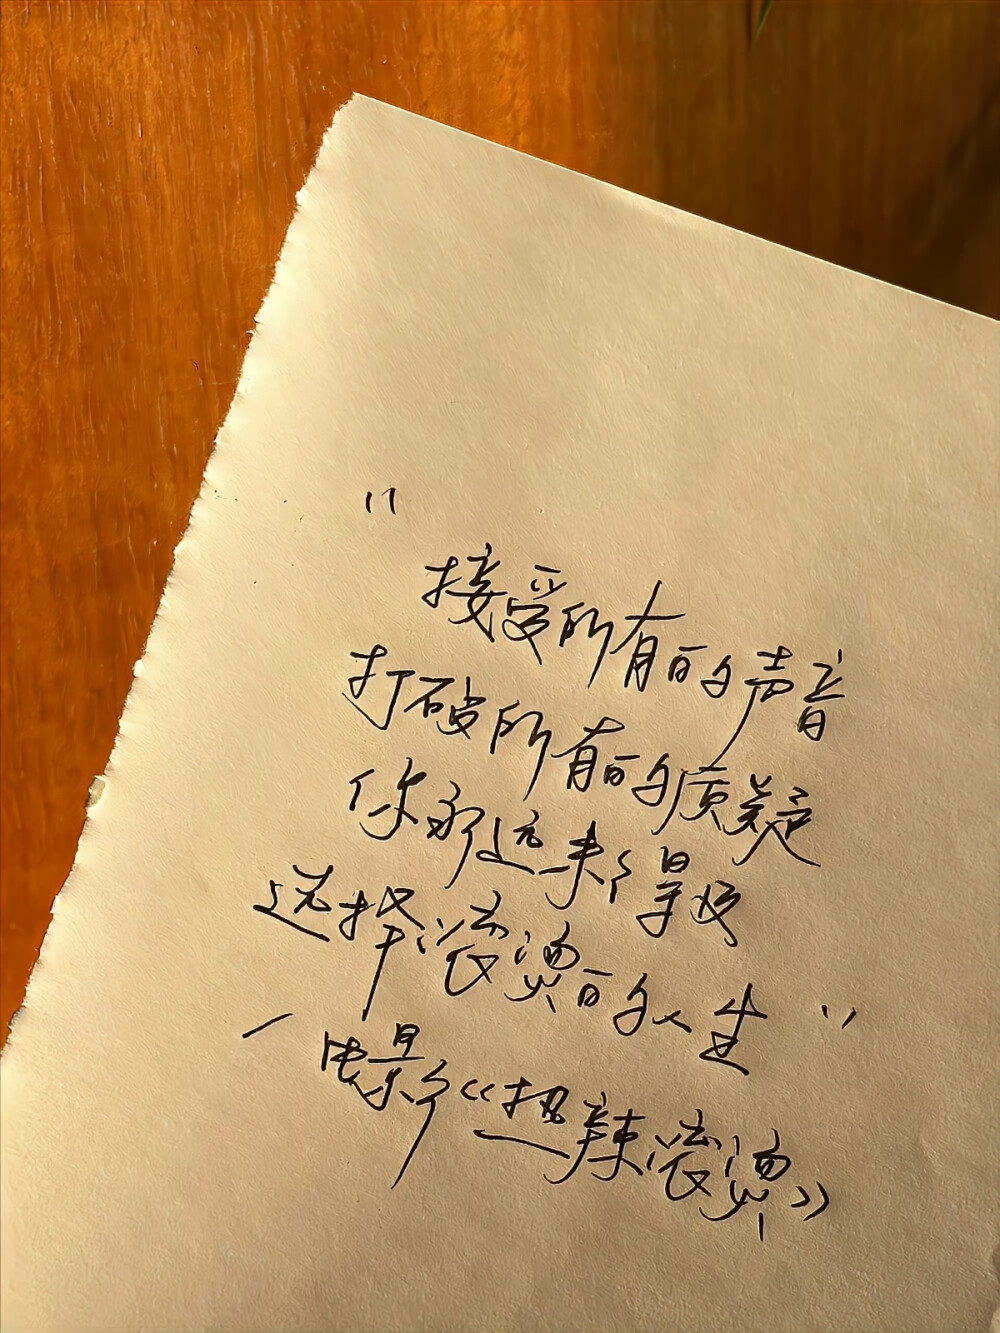 "
接受所有的声音
打破所有的质疑
你永远来得及
选择滚烫的人生"
/电影《热辣滚烫》